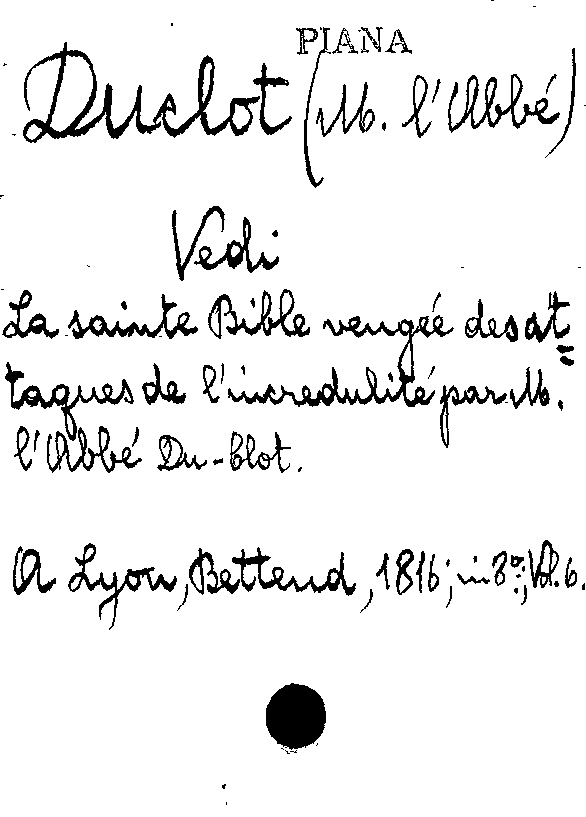 PIANA
Duclot (M. l'Abbé)
Vedi
La sainte Bible vengeé des at=
taques de l'incredulité par M.
l'Abbé Du-blot.
A Lyon, Bettend, 1816; in 8º; Vol. 6.